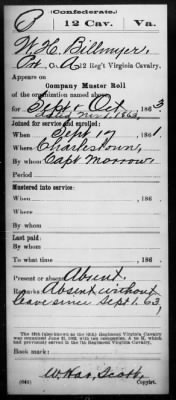 (Confederate.)
B 12 Cav. Va.
W. H. Billmyer,
Pvt, Co. A, 12 Reg't Virginia Cavalry.
Appears on
Company Muster Roll
of the organization named above,
for Sept & Oct, 1863.
dated Nov 1, 1863.
Joined for service and enrolled:
When Sept 17, 1861.
Where Charlestown,
By whom Capt Morrow,
Period
Mustered into service:
When , 186 .
Where
By whom
Last paid:
By whom
To what time , 186 .
Present or absent Absent.
Remarks: Absent without
leave since Sept 1. 63,
was organized June 21, 1862, with ten companies, A to K, which
had previously served as the 7th Regiment Virginia Cavalry.
Book mark:
(642)
Copyist.